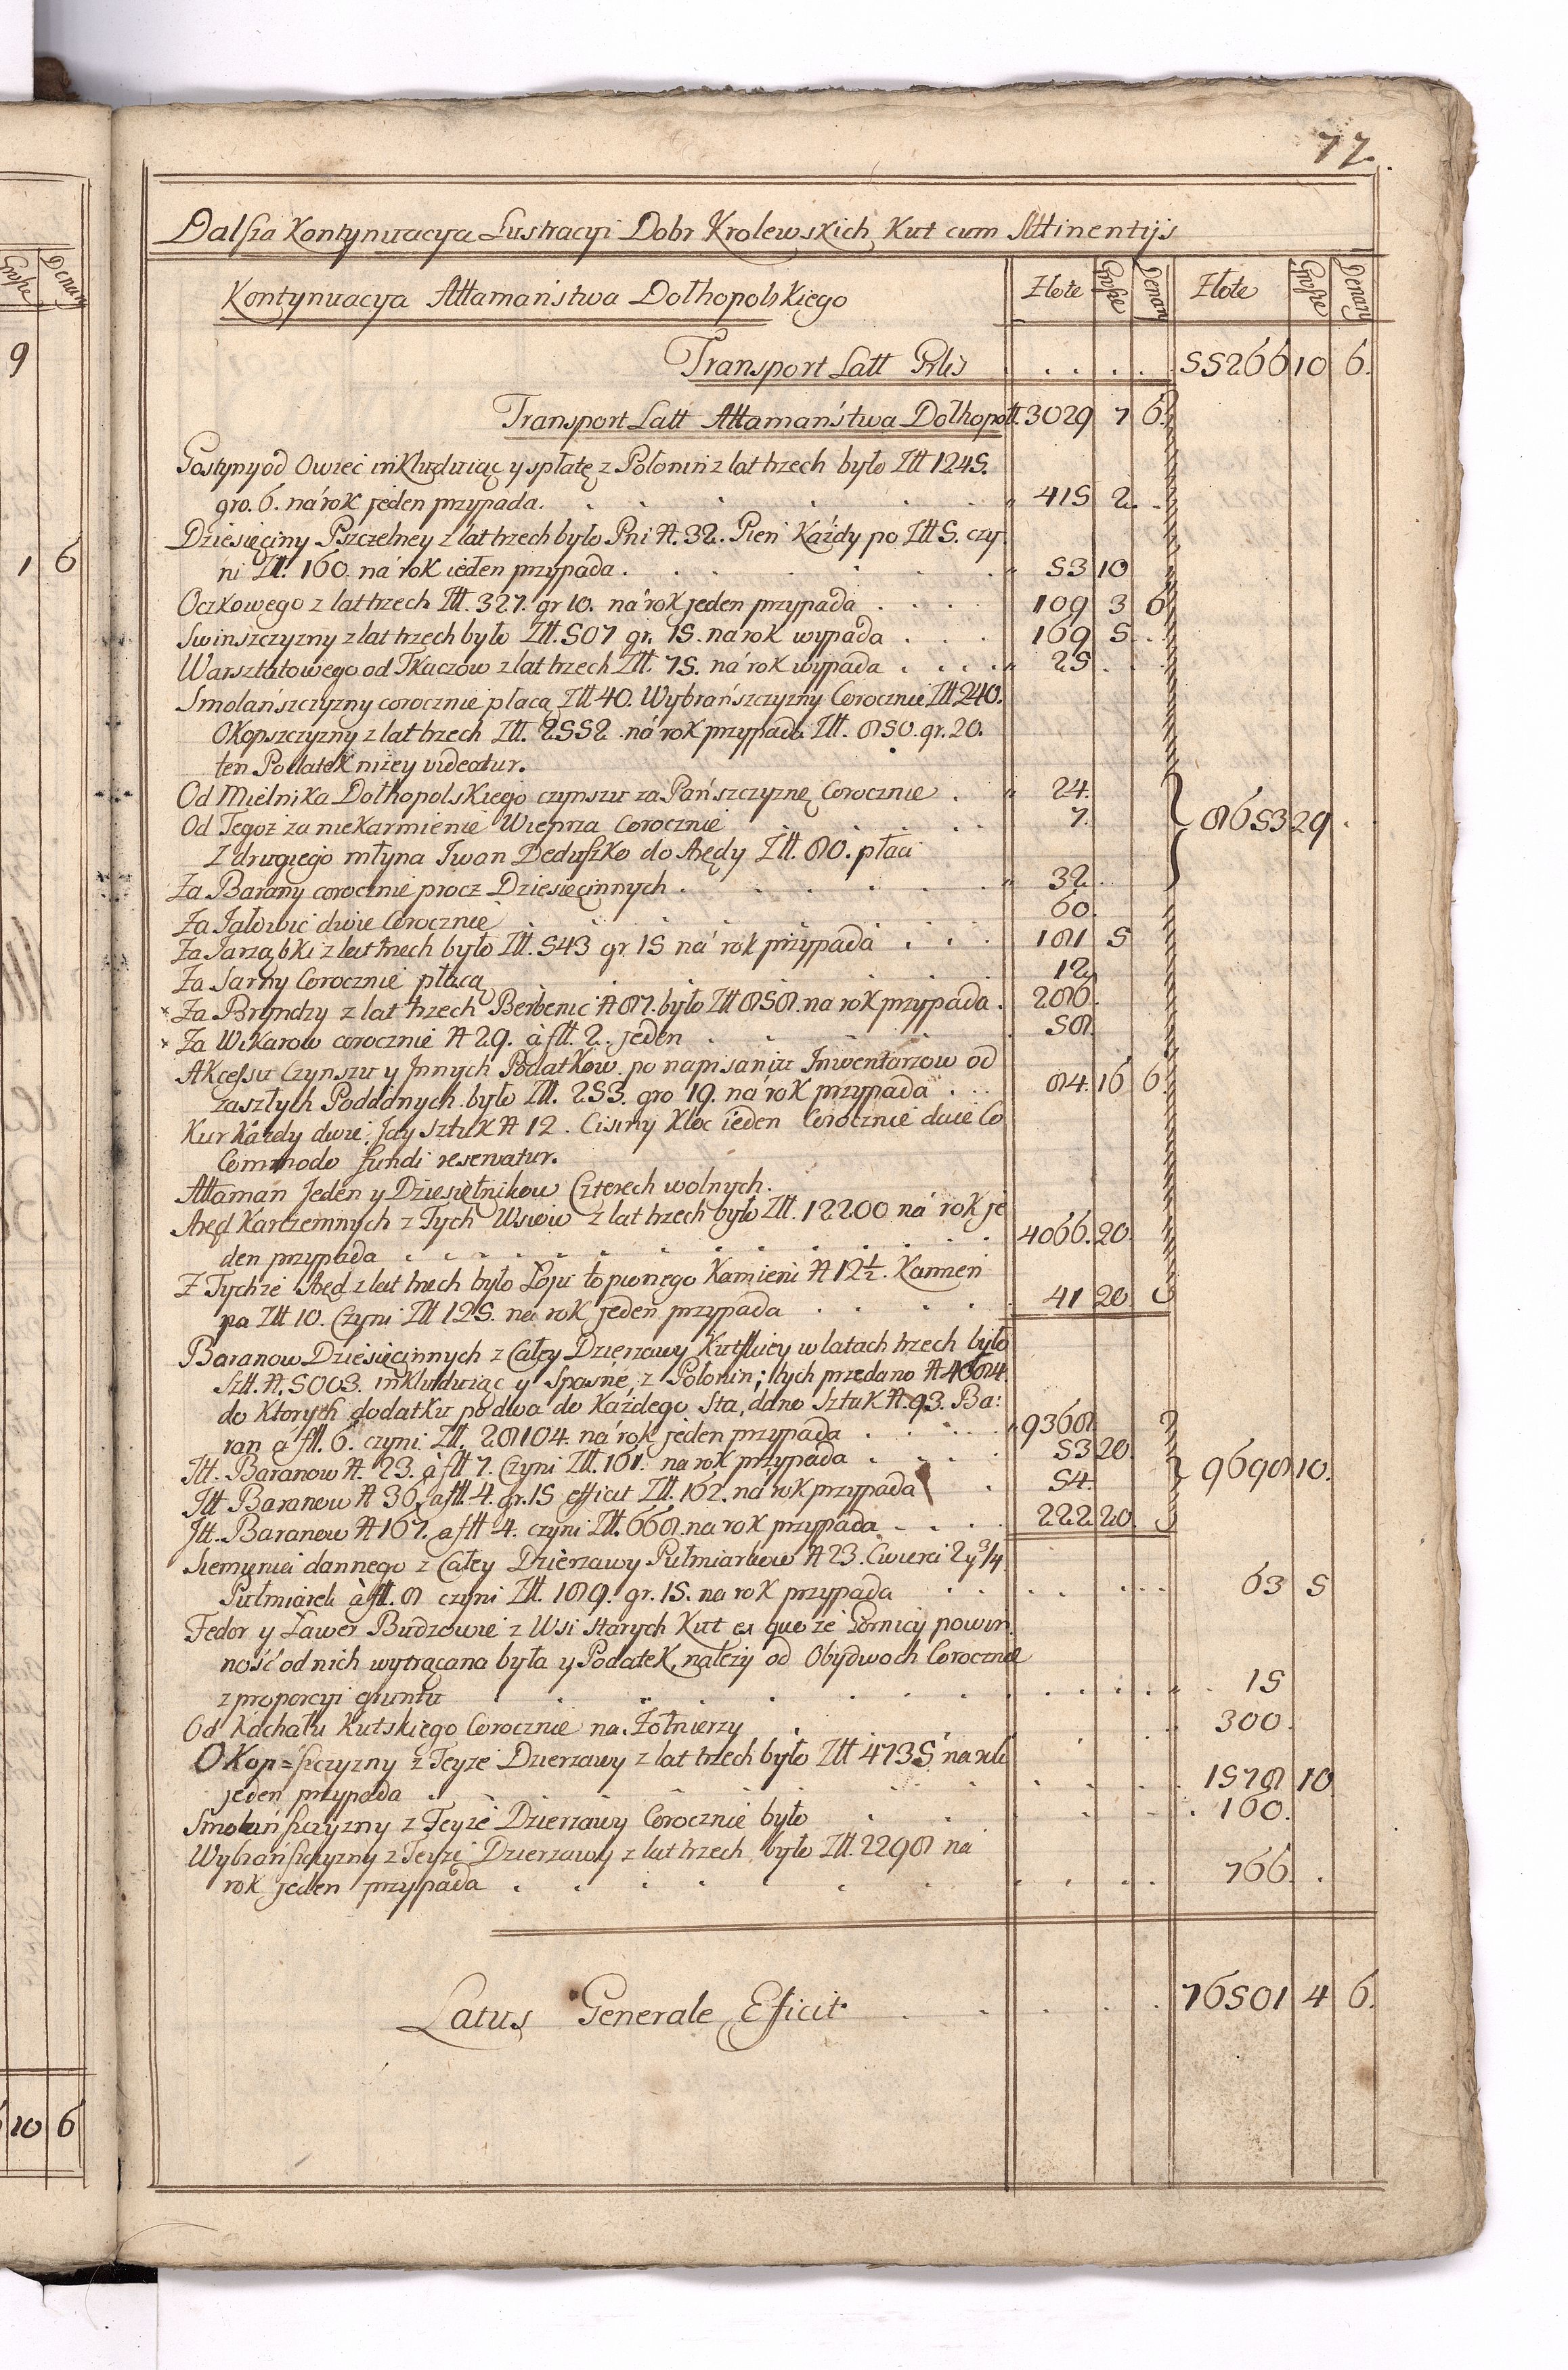 77.
Dalsza Kontynuacya Lustracyi Dobr Krolewskich Kut cum Attinentijs
Kontynuacya Attamaństwa Dołhopolskiego Złote Grosze Denary Złote Grosze Denary
Transport Latt Grlis . . . . 55266 10 6.
Transport Latt Attamaństwa Dołhopoll. 3029 7 6.
Gostyny od Owiec inkludując y spłatę z Połonin z lat trzech było Złt 1245.
gro. 6. ná rok jeden przypada. 415 2.
Dziesięciny Pszczelney z lat trzech było Pni N. 32. Pień Każdy po Złt 5. czy
ni Złt. 160. ná rok ieden przypada. 53 10
Oczkowego z lat trzech Złt. 327. gr 10. ná rok jeden przypada 109 3 6
Swinszczyzny z lat trzech było Złt. 507 gr. 15. na rok wypada 169 5
Warsztatowego od Tkaczow z lat trzech Złt. 75. ná rok wypada 25
Smolańszczyzny corocznie płacą Złt 40. Wybrańszczyzny Corocznie Złt 240.
Okopszczyzny z lat trzech Złt. 2552 ná rok przypada Złt. 850. gr. 20.
ten Podatek niżey videatur.
Od Mielnika Dołhopolskiego czynszu za Pańszczyznę Corocznie 24.
Od Tegoż za niekarmienie Wieprza Corocznie 7. 8653 29
Z drugiego młyna Iwan Deduszko do Arędy Złt. 80. płaci
Za Barany corocznie procz Dziesięcinnych 32
Za Jałowic dwie Corocznie 60.
Za Jarząbki z lat trzech było Złt. 543 gr. 15 ná rok przypada 181 5
Za Sarny Corocznie płacą 12
Za Bryndzy z lat trzech Berbenic N 87. było Złt 858. na rok przypada 286.
Za Wikarow corocznie N 29. à fłt. 2. jeden 58.
Akcessu Czynszu y Innych Podatkow po napisaniu Inwentarzow od
zaszłych Poddanych było Złt. 253. gro 19. ná rok przypada 84. 16 6
Kur Każdy dwie, Jay sztuk N 12. Cisiny Kloc ieden Corocznie daie Co
Commodo fundi reservatur.
Attaman Jeden y Dziesiętnikow Czterech wolnych.
Aręd Karczemnych z Tych Wsiow z lat trzech było Złt. 12200 ná rok je
den przypada 4066. 20.
Z Tychże Aręd z lat trzech było Łoju topionego Kamieni N 12½. Kamien
po Złt 10. Czyni Złt 125. na rok jeden przypada 41 20
Baranow Dziesięcinnych z Całey Dzierzawy Kutskiey w latach trzech było
Szt. N. 5003. inkludując y Spasne z Połonin; tych przedano N 4684.
do Ktorych dodatku po dwa do Każdego Sta, dano Sztuk N. 93. Ba:
ran á fłt. 6. czyni Złt. 28104. ná rok jeden przypada 9368.
Itt. Baranow N. 23. à fłt 7. Czyni Złt. 161. na rok przypada 53 20.
Itt Baranow N 36. a fłt. 4. gr. 15 efficit Złt. 162. ná rok przypada 54. 9698 10.
Itt. Baranow N 167. a fłt 4. czyni Złt. 668. na rok przypada 222 20
Siemynia dannego z Całey Dzierzawy Pułmiarkow N 23. Cwierci 2 y ¾
Pułmiarek à fłt. 8 czyni Złt. 189. gr. 15. na rok przypada 63 5
Fedor y Ławer Budzowie z Wsi Starych Kut ex quo że Gornicy powin
ność od nich wytrącana była y Podatek, należy od Obydwoch Corocznie
z proporcyi gruntu 15
Od Kachału Kutskiego Corocznie na Żołnierzy 300.
Okop=szczyzny z Teyże Dzierzawy z lat trzech było Złt 4735 na rok
jeden przypada 1578 10
Smolańszczyzny z Teyże Dzierzawy Corocznie było 160.
Wybrańszczyzny z Teyże Dzierzawy z lat trzech było Złt. 2298 na
rok jeden przypada 766
Latus Generale Efficit 76501 4 6.
Grosze Denary
9
1 6
10 6